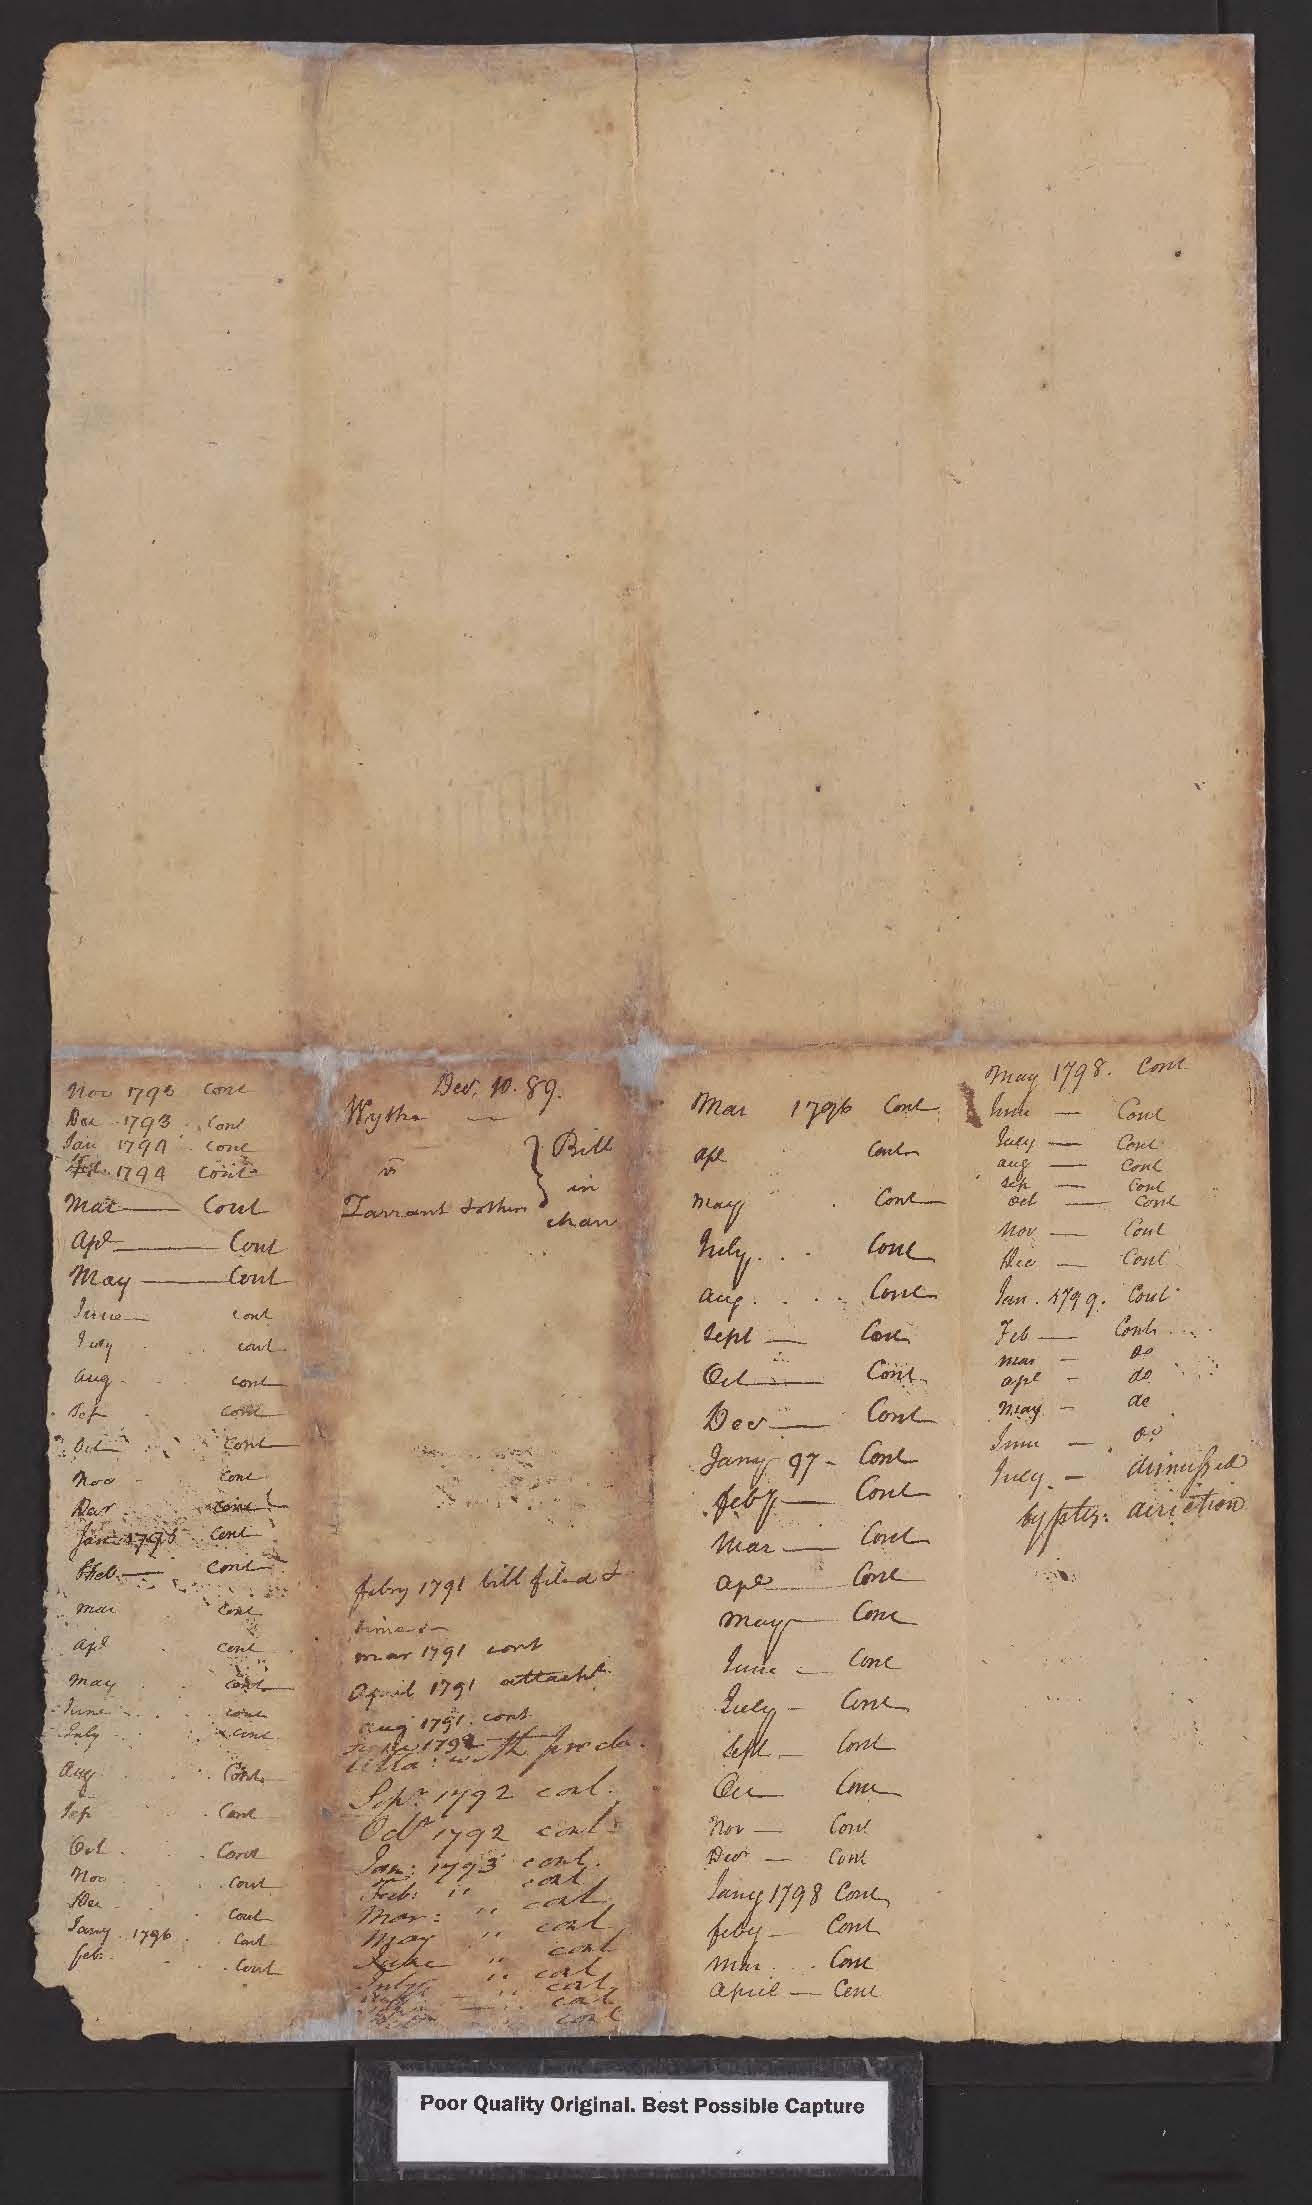 Nov 1793 Cont
Dec 1793 Cont
Jan 1794 Cont
Feb. 1794 Cont
Mar Cont
Apl Cont
May Cont
June cont
July cont
Aug cont
Sep cont
Oct Cont
Nov Cont
Dec Cont
Jan 1795 Cont
Feb. Cont
Mar Cont
Apl Cont
May Cont
June cont
July Cont
Aug Cont
Sep Cont
Oct Cont
Nov Cont
Dec Cont
Jany 1796 Cont
feb. Cont
Decr. 10. 89.
Wythe
vs
Tarrant & others
} Bill
in
chan
febry 1791 bill filed &
mar 1791 cont
April 1791 attacht.
aug 1791. cont
June 1792
with procla.
Sepr. 1792 cont.
Octr 1792 cont.
Jan: 1793 cont.
Feb: " cont
Mar: " cont
May " cont
June " cont
July " cont
" cont
cont
cont
Mar 1796 Cont
Apl Cont
May Cont
July Cont
aug. Cont
Sept — Cont
Oct — Cont
Dec — Cont
Jany 97 - Cont
feby — Cont
Mar — Cont
Apl Cont
May — Cont
June — Cont
July — Cont
Sept — Cont
Oct Cont
Nov — Cont
Decr — Cont
Jany 1798 Cont
feby — Cont
Mar Cont
April — Cont
May 1798. Cont
June — Cont
July — Cont
aug — Cont
sep — Cont
Oct — Cont
Nov — Cont
Dec — Cont
Jan. 1799. Cont
Feb — Cont
mar — do
apl - do
May - do
June — do
July. — dismissed
by plts: direction
Poor Quality Original. Best Possible Capture